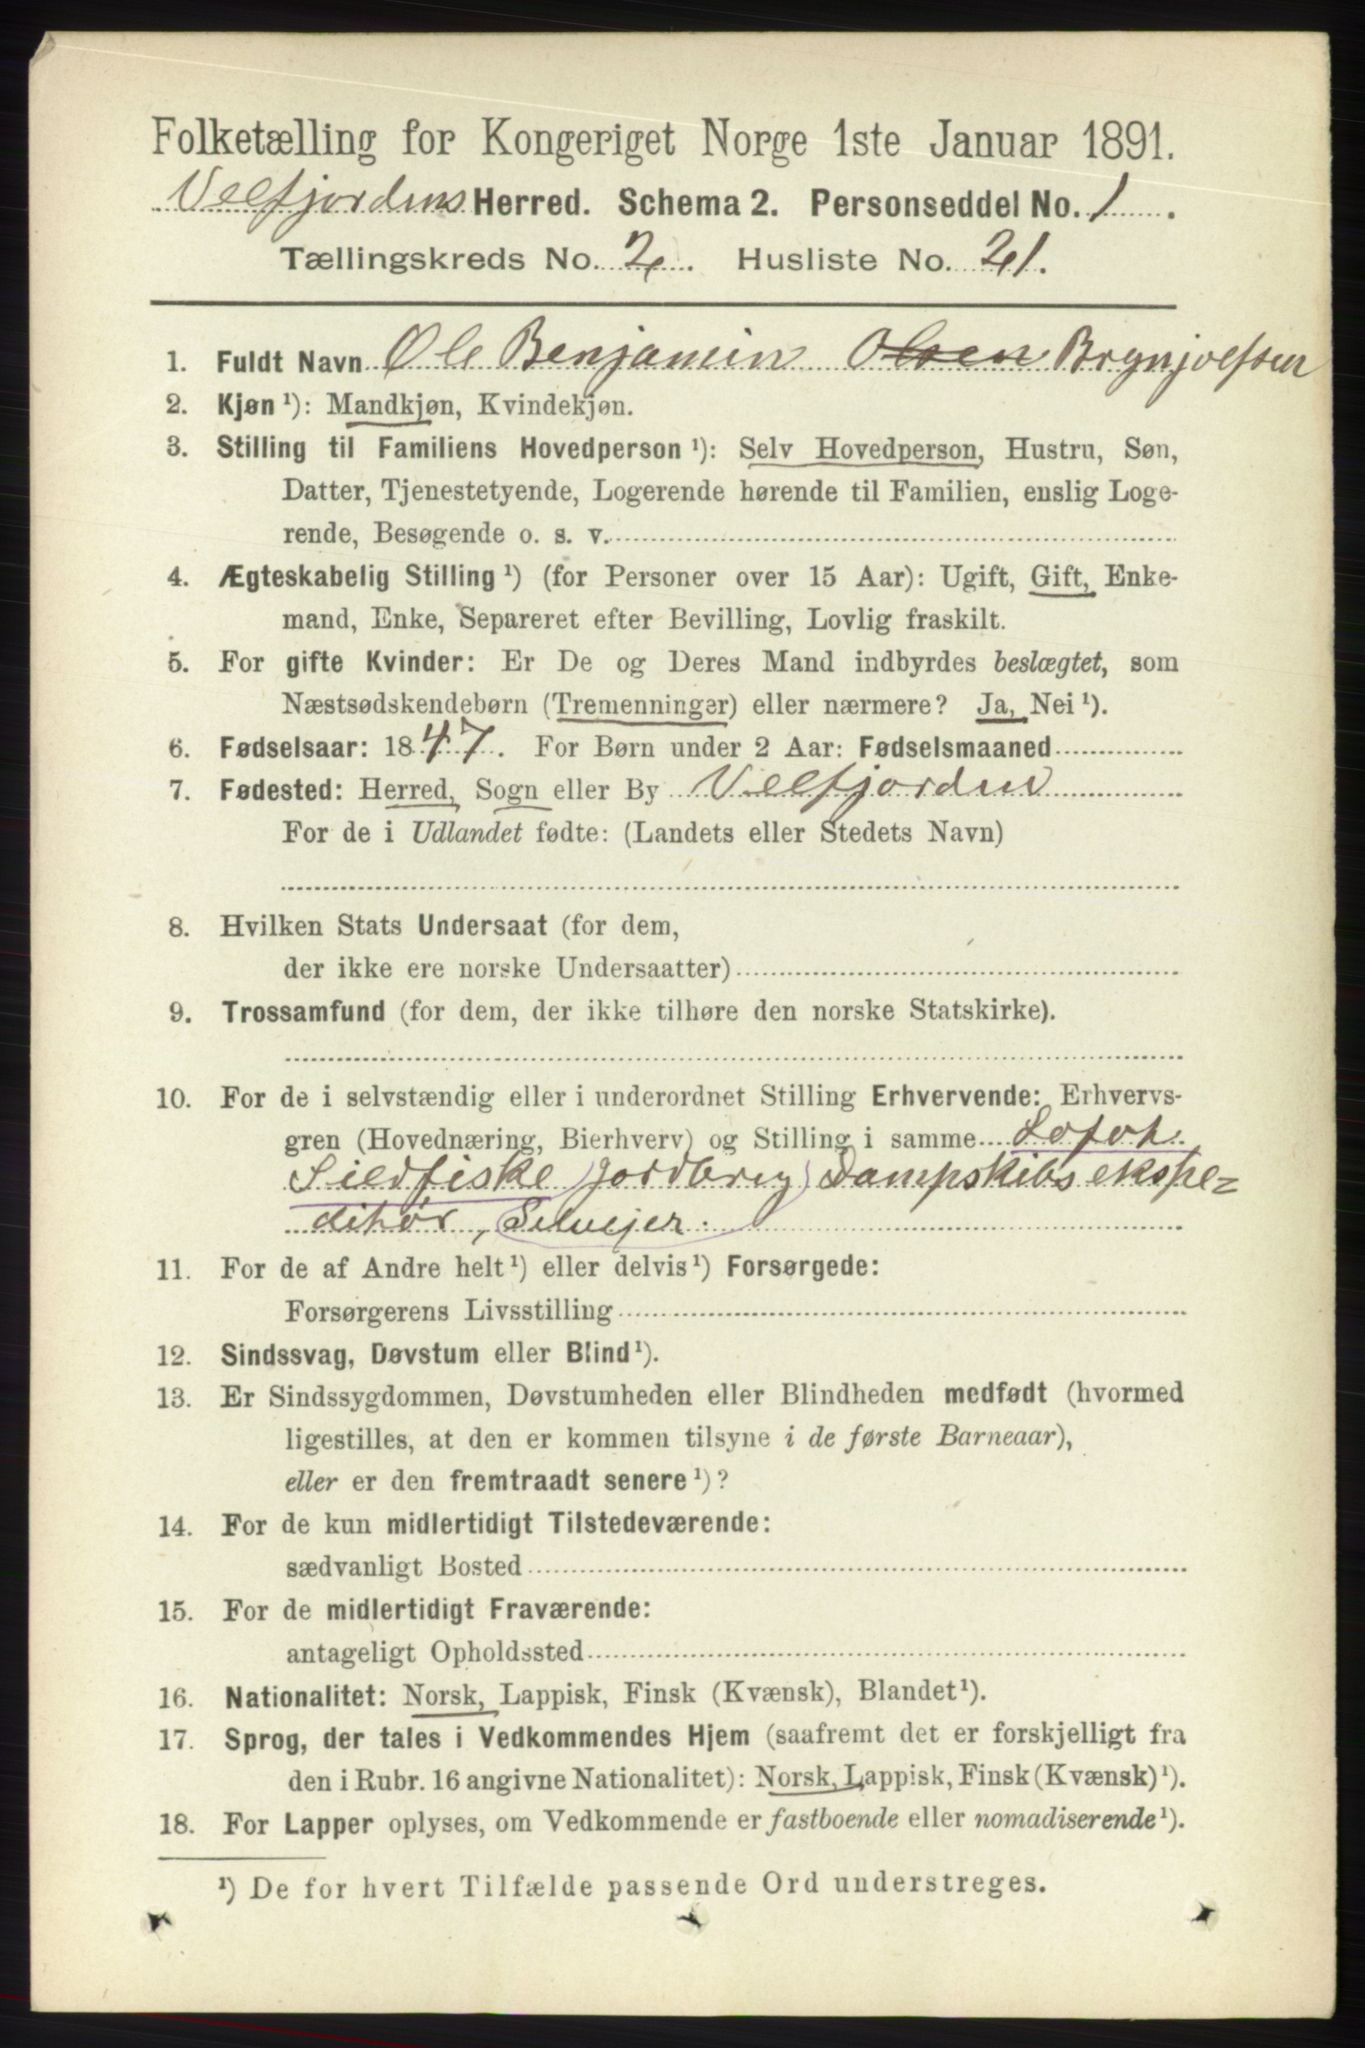 Folketælling for Kongeriget Norge 1ste Januar 1891.
Velfjordens Herred. Schema 2. Personseddel No. 1.
Tællingskreds No. 2. Husliste No. 21.
1. Fuldt Navn Ole Benjamin Olsen Brynjolfsen
2. Kjøn ¹): Mandkjøn, Kvindekjøn.
3. Stilling til Familiens Hovedperson ¹): Selv Hovedperson, Hustru, Søn,
Datter, Tjenestetyende, Logerende hørende til Familien, enslig Loge-
rende, Besøgende o. s. v.
4. Ægteskabelig Stilling ¹) (for Personer over 15 Aar): Ugift, Gift, Enke-
mand, Enke, Separeret efter Bevilling, Lovlig fraskilt.
5. For gifte Kvinder: Er De og Deres Mand indbyrdes beslægtet, som
Næstsødskendebørn (Tremenninger) eller nærmere? Ja, Nei ¹).
6. Fødselsaar: 1847. For Børn under 2 Aar: Fødselsmaaned
7. Fødested: Herred, Sogn eller By Velfjorden
For de i Udlandet fødte: (Landets eller Stedets Navn)
8. Hvilken Stats Undersaat (for dem,
der ikke ere norske Undersaatter)
9. Trossamfund (for dem, der ikke tilhøre den norske Statskirke).
10. For de i selvstændig eller i underordnet Stilling Erhvervende: Erhvervs-
gren (Hovednæring, Bierhverv) og Stilling i samme Lofot
Sildfiske Jordbrug Dampskibsekspe-
ditør, Selvejer.
11. For de af Andre helt ¹) eller delvis ¹) Forsørgede:
Forsørgerens Livsstilling
12. Sindssvag, Døvstum eller Blind ¹).
13. Er Sindssygdommen, Døvstumheden eller Blindheden medfødt (hvormed
ligestilles, at den er kommen tilsyne i de første Barneaar),
eller er den fremtraadt senere ¹)?
14. For de kun midlertidigt Tilstedeværende:
sædvanligt Bosted
15. For de midlertidigt Fraværende:
antageligt Opholdssted
16. Nationalitet: Norsk, Lappisk, Finsk (Kvænsk), Blandet ¹).
17. Sprog, der tales i Vedkommendes Hjem (saafremt det er forskjelligt fra
den i Rubr. 16 angivne Nationalitet): Norsk, Lappisk, Finsk (Kvænsk) ¹).
18. For Lapper oplyses, om Vedkommende er fastboende eller nomadiserende ¹).
¹) De for hvert Tilfælde passende Ord understreges.